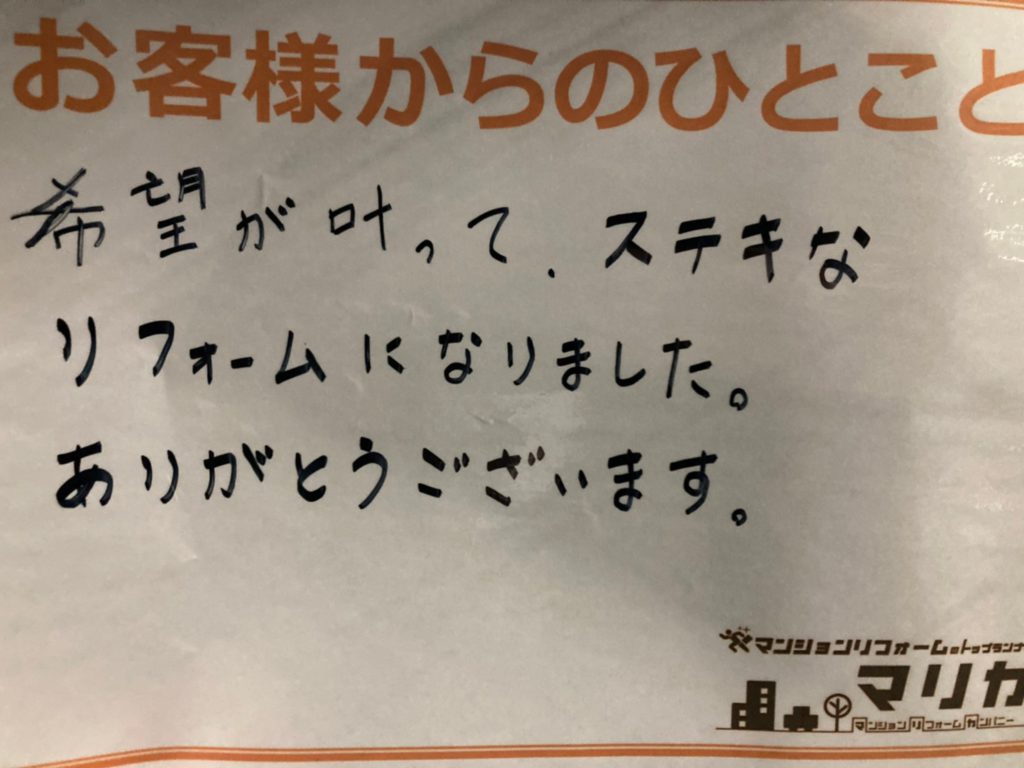 お客様からのひとこと
希望が叶って、ステキな
リフォームになりました。
ありがとうございます。
マンションリフォームのトップランナ
マリカ
マンションリフォームカンパニー